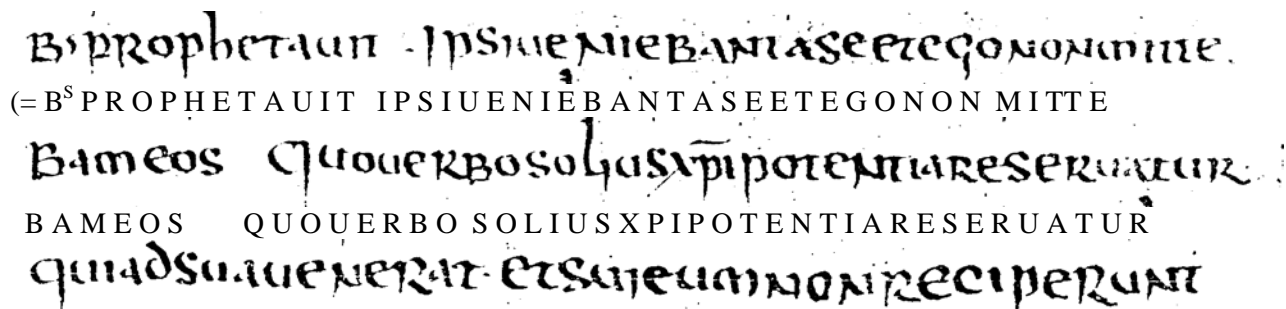 B՚ PROPhETAUIT · IPSIUENIEBANTASEETEGONONMITTE.
(= Bˢ P R O P H E T A U I T I P S I U E N I E B A N T A S E E T E G O N O N M I T T E
BAMEOS QUOUERBOSOLIUSXP̅IPOTENTIARESERUATUR
B A M E O S Q U O U E R B O S O L I U S X P I P O T E N T I A R E S E R U A T U R
QUIADSUAUENERAT· ETSUIEUMNONRECIPERUNT